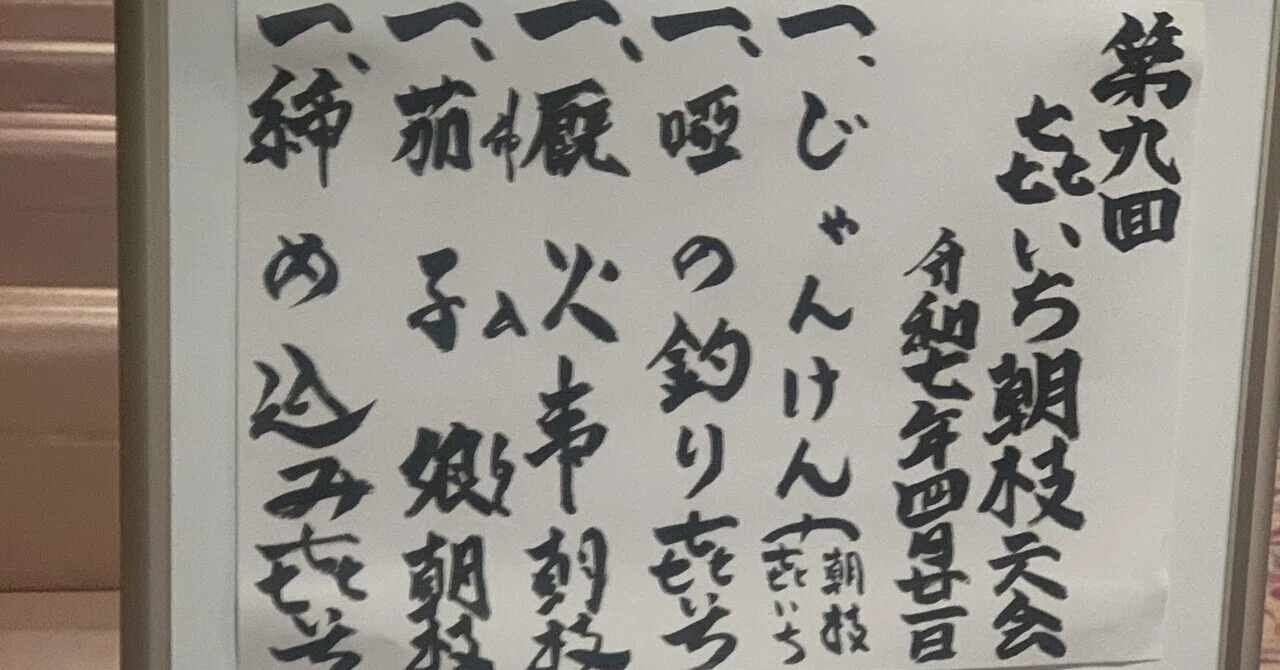 第九回
㐂いち朝枝二人会
令和七年四月廿一日
一、じゃんけん(朝枝 㐂いち
一、唖の釣り 㐂いち
一、厩火事 朝枝
仲入り
一、茄子娘 朝枝
一、締め込み 㐂いち